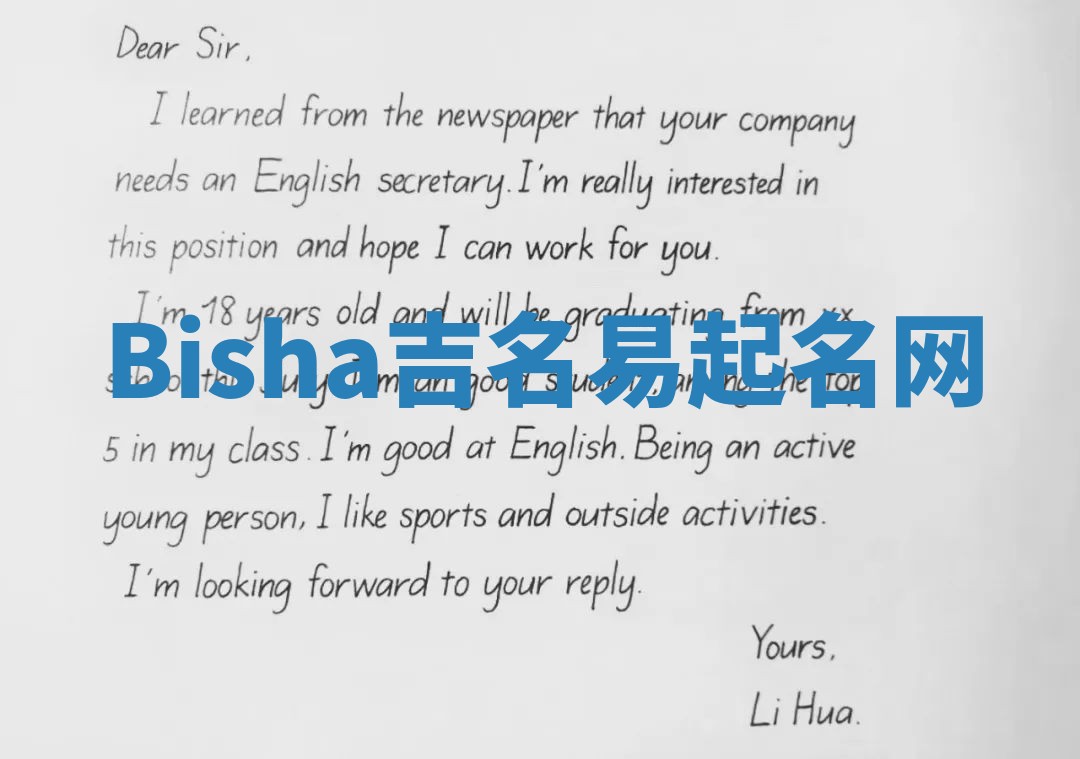 Dear Sir,
I learned from the newspaper that your company
needs an English secretary. I'm really interested in
this position and hope I can work for you.
I'm 18 years old and will be graduating from xx
Bisha吉名易起名网
school this July. I'm an good student, among the top
5 in my class. I'm good at English. Being an active
young person, I like sports and outside activities.
I'm looking forward to your reply.
Yours,
Li Hua.